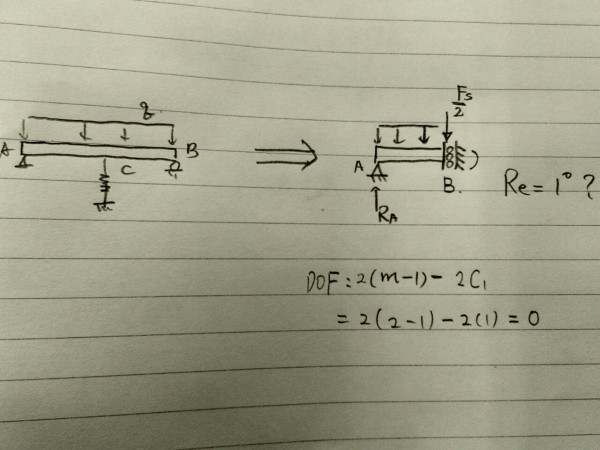 q
A B
C
Fs
2
A
B.
RA
Re = 1° ?
DOF : 2(m-1) - 2C₁
= 2(2-1) - 2(1) = 0